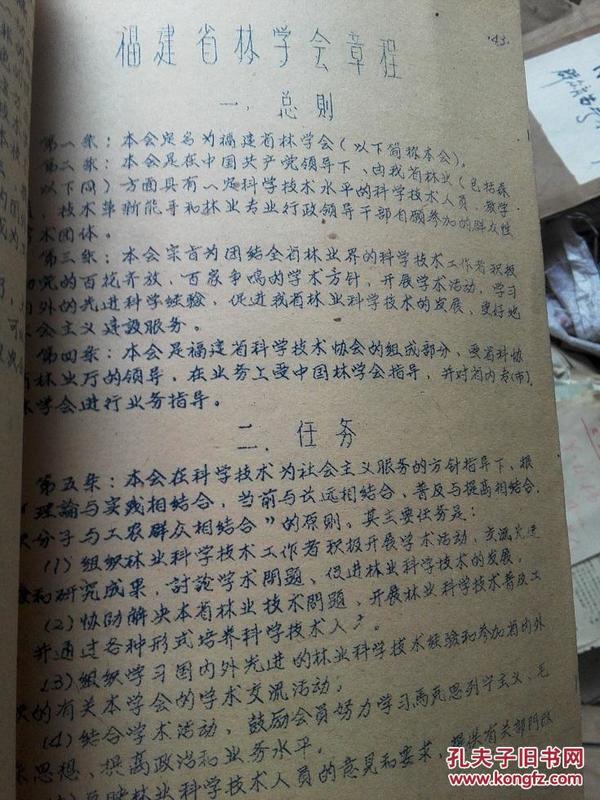 福建省林学会章程
·43·
一、总则
第一条:本会定名为福建省林学会(以下简称本会)。
第二条:本会是在中国共产党领导下、由我省林业(包括森
以下同)方面具有一定科学技术水平的科学技术人员、教学
、技术革新能手和林业专业行政领导干部自愿参加的群众性
术团体。
第三条:本会宗旨为团结全省林业界的科学技术工作者积极
党的百花齐放、百家争鸣的学术方针,开展学术活动,学习
外的先进科学经验,促进我省林业科学技术的发展、更好地
会主义建设服务。
第四条:本会是福建省科学技术协会的组成部分,受省科协
林业厅的领导,在业务上受中国林学会指导,并对省内专(市)
林学会进行业务指导。
二、任务
第五条:本会在科学技术为社会主义服务的方针指导下、根
“理論与实践相结合,当前与长远相结合、普及与提高相结合、
分子与工农群众相结合”的原则。其主要任务是:
(1)组织林业科学技术工作者积极开展学术活动,交流先进
和研究成果,討論学术問題、促进林业科学技术的发展。
(2)协助解决本省林业技术問題、开展林业科学技术普及工
并通过各种形式培养科学技术人才。
(3)组织学习国内外先进的林业科学技术经验和参加省内外
的有关本学会的学术交流活动。
(4)结合学术活动、鼓励会员努力学习馬克思列宁主义、毛
思想、提高政治和业务水平。
反映林业科学技术人员的意見和要求、提供有关部門改
孔夫子旧书网
www.kongfz.com